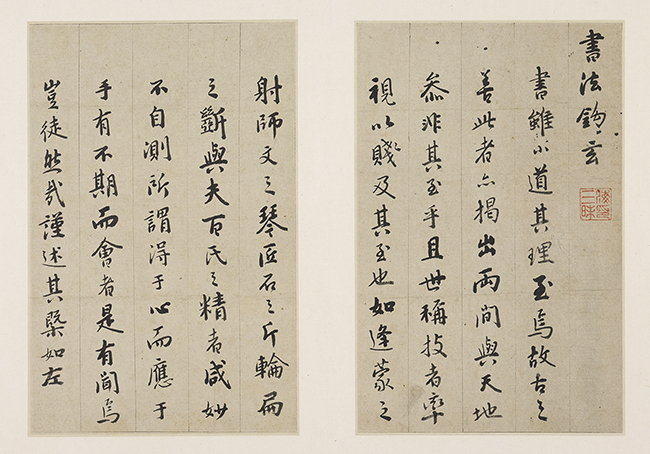 書法鉤玄
書雖小道其理至焉故古之
善此者亦揭出兩間與天地
參非其至乎且世稱技者率
視以賤及其至也如逢蒙之
射師文之琴匠石之斤輪扁
之斲與夫百氏之精者咸妙
不自測所謂得于心而應于
手有不期而會者是有聞焉
豈徒然哉謹述其槩如左
三昧